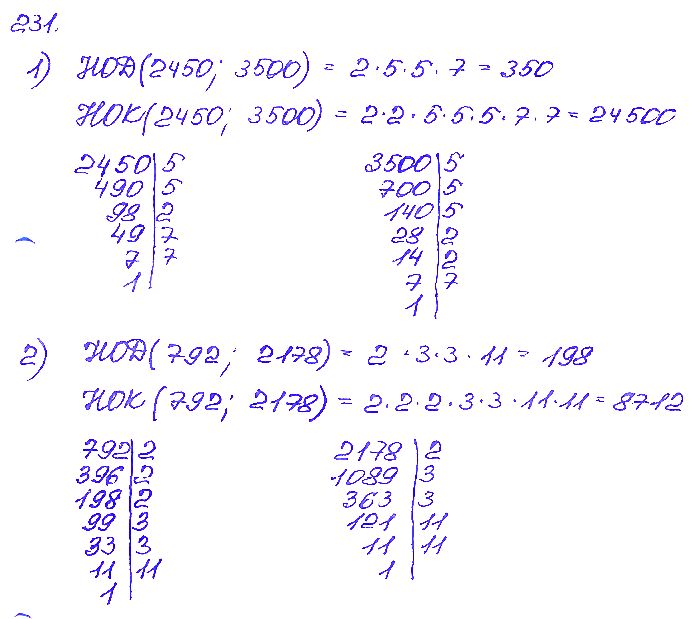 231.
1) НОД(2450; 3500) = 2·5·5·7 = 350
НОК(2450; 3500) = 2·2·5·5·5·7·7 = 24500
2450|5 3500|5
490|5 700|5
98|2 140|5
49|7 28|2
7|7 14|2
1| 7|7
1|
2) НОД(792; 2178) = 2·3·3·11 = 198
НОК(792; 2178) = 2·2·2·3·3·11·11 = 8712
792|2 2178|2
396|2 1089|3
198|2 363|3
99|3 121|11
33|3 11|11
11|11 1|
1|